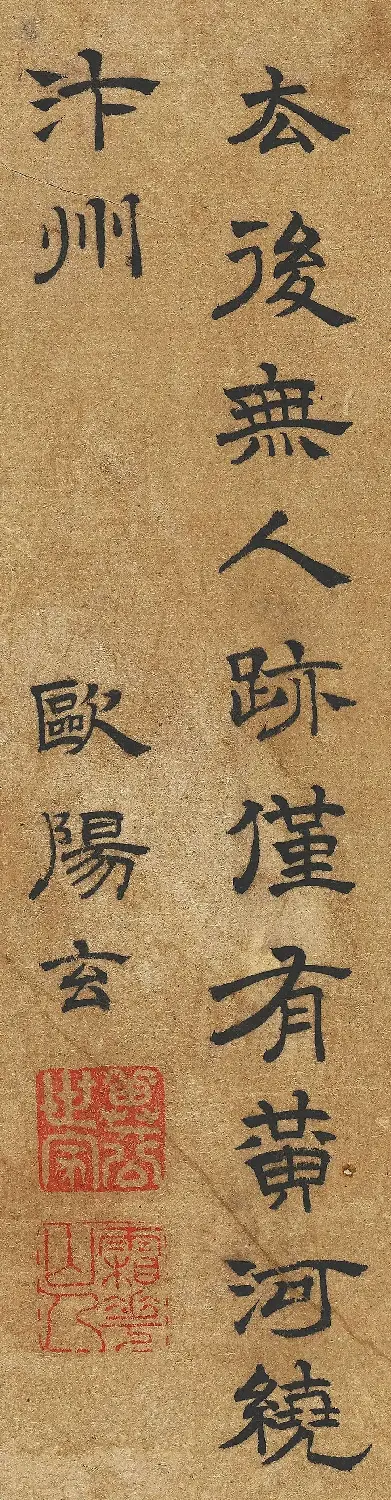 去後無人跡僅有黃河繞
汴州
歐陽玄